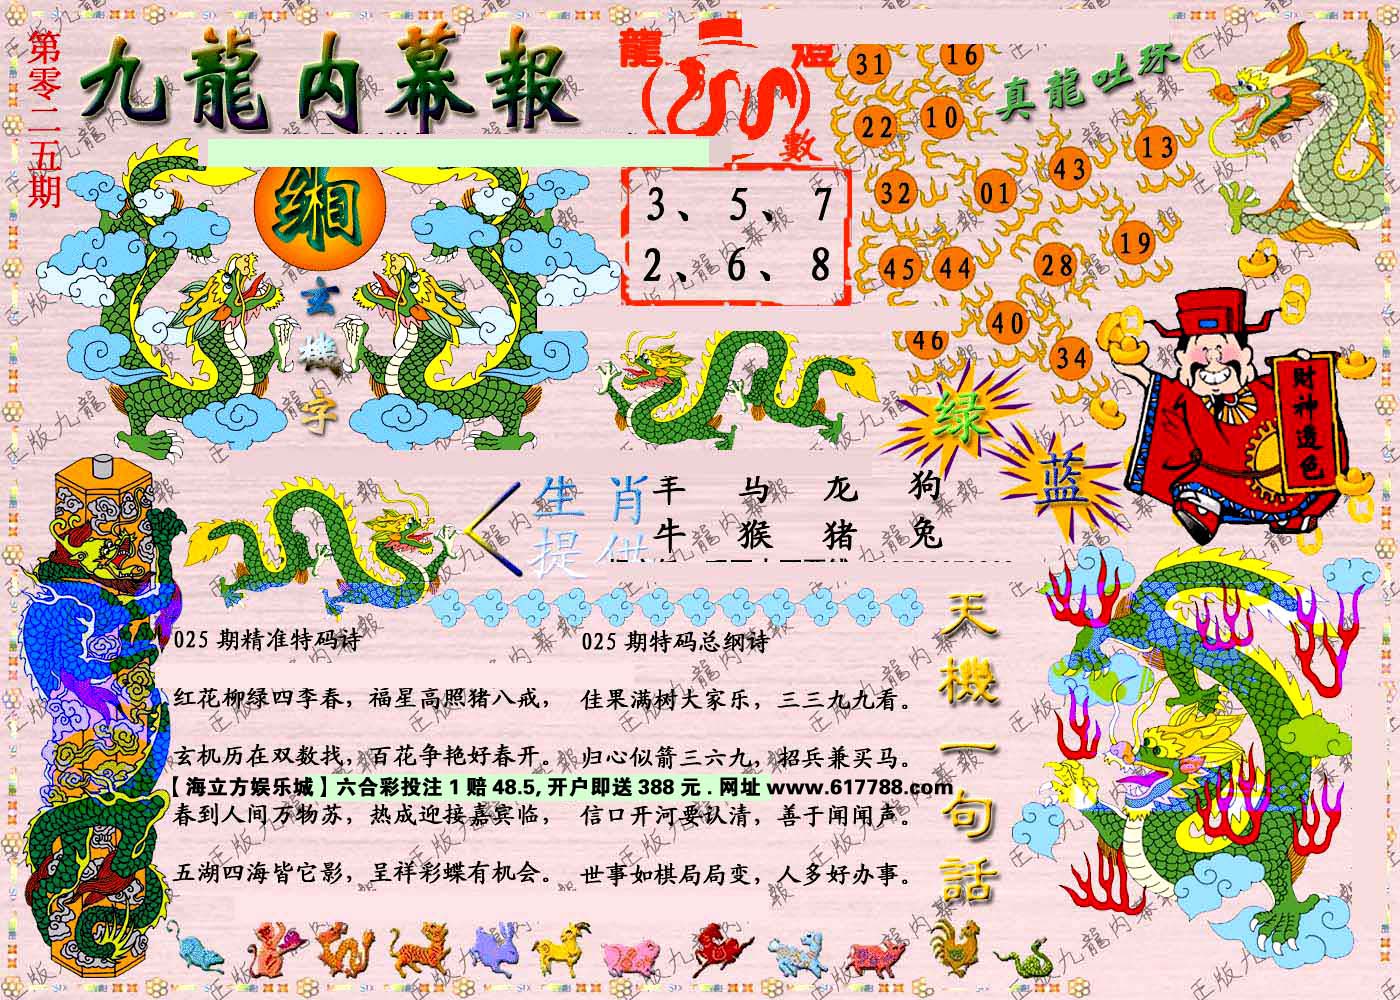 第零二五期
九龍內幕報
龍
數
3、5、7
2、6、8
31 16
22 10
真龍吐珠
43 13
32 01
19
45 44 28
46 40
34
玄機字
绿
蓝
财神透色
生肖
提供
羊 马 龙 狗
牛 猴 猪 兔
025 期精准特码诗
红花柳绿四季春，福星高照猪八戒，
玄机历在双数找，百花争艳好春开。
春到人间万物苏，热成迎接嘉宾临，
五湖四海皆它影，呈祥彩蝶有机会。
025 期特码总纲诗
佳果满树大家乐，三三九九看。
归心似箭三六九，招兵兼买马。
【海立方娱乐城】六合彩投注 1 赔 48.5, 开户即送 388 元 . 网址 www.617788.com
信口开河要认清，善于闻闻声。
世事如棋局局变，人多好办事。
天機一句話
正版九龍內幕報